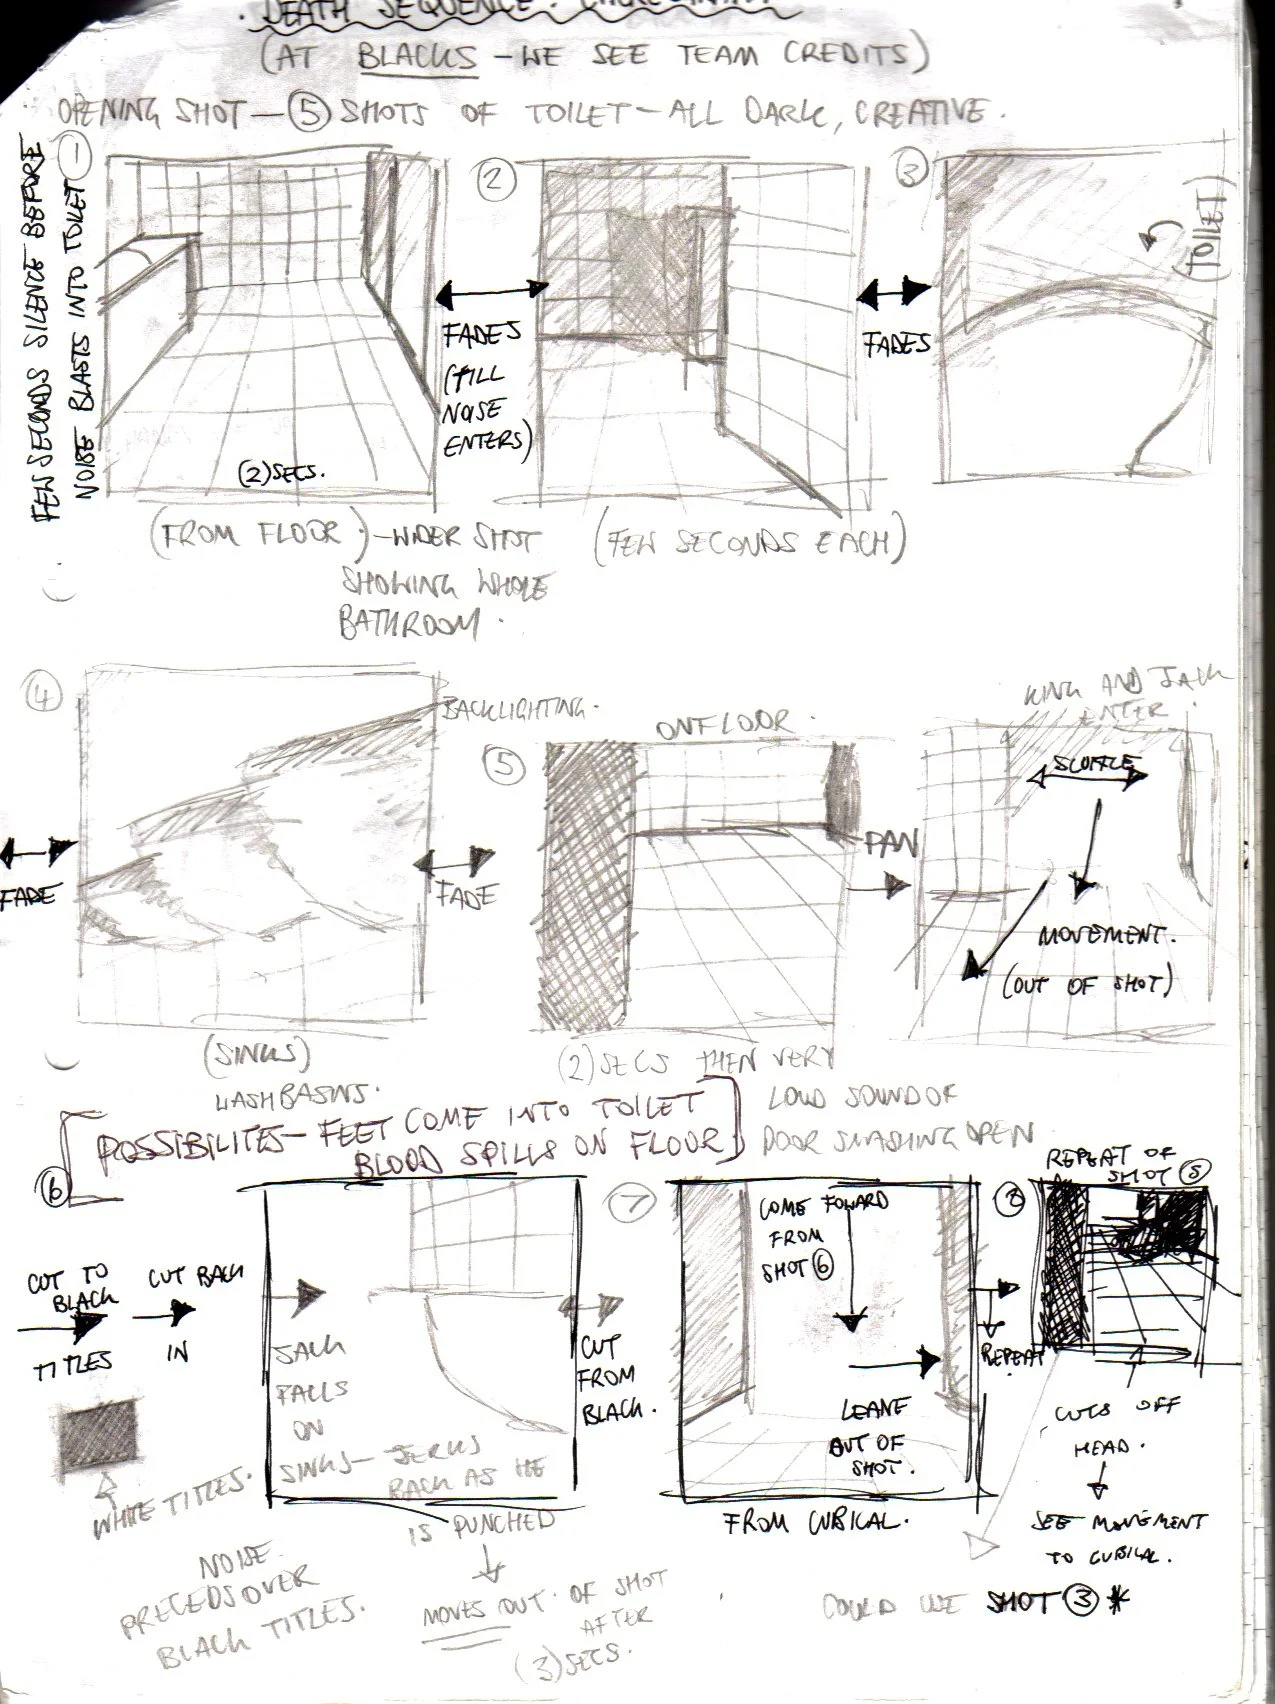 DEATH SEQUENCE.
(AT BLACKS - WE SEE TEAM CREDITS)
OPENING SHOT - 5 SHOTS OF TOILET - ALL DARK, CREATIVE.
FEW SECONDS SILENCE BEFORE
NOISE BLASTS INTO TOILET
1
(2) SECS.
FADES
(TILL
NOISE
ENTERS)
2
FADES
3
(TOILET)
(FROM FLOOR) - WIDER SHOT
SHOWING WHOLE
BATHROOM.
(FEW SECONDS EACH)
4
FADE
BACKLIGHTING.
FADE
(SINKS)
WASHBASINS.
5
ON FLOOR.
PAN
(2) SECS THEN VERY
LOUD SOUND OF
DOOR SMASHING OPEN
KING AND JACK
ENTER.
SCUFFLE
MOVEMENT.
(OUT OF SHOT)
POSSIBILITES - FEET COME INTO TOILET
BLOOD SPILLS ON FLOOR
6
CUT TO
BLACK
TITLES
CUT BACK
IN
WHITE TITLES.
NOISE
PRECEDS OVER
BLACK TITLES.
JACK
FALLS
ON
SINKS - JERKS
BACK AS HE
IS PUNCHED
MOVES OUT OF SHOT
AFTER
(3) SECS.
CUT
FROM
BLACK.
7
COME FOWARD
FROM
SHOT 6
LEAVE
OUT OF
SHOT.
FROM CUBICAL.
REPEAT
8
REPEAT OF
SHOT 5
CUTS OFF
HEAD.
SEE MOVEMENT
TO CUBICAL.
COULD USE SHOT 3 *